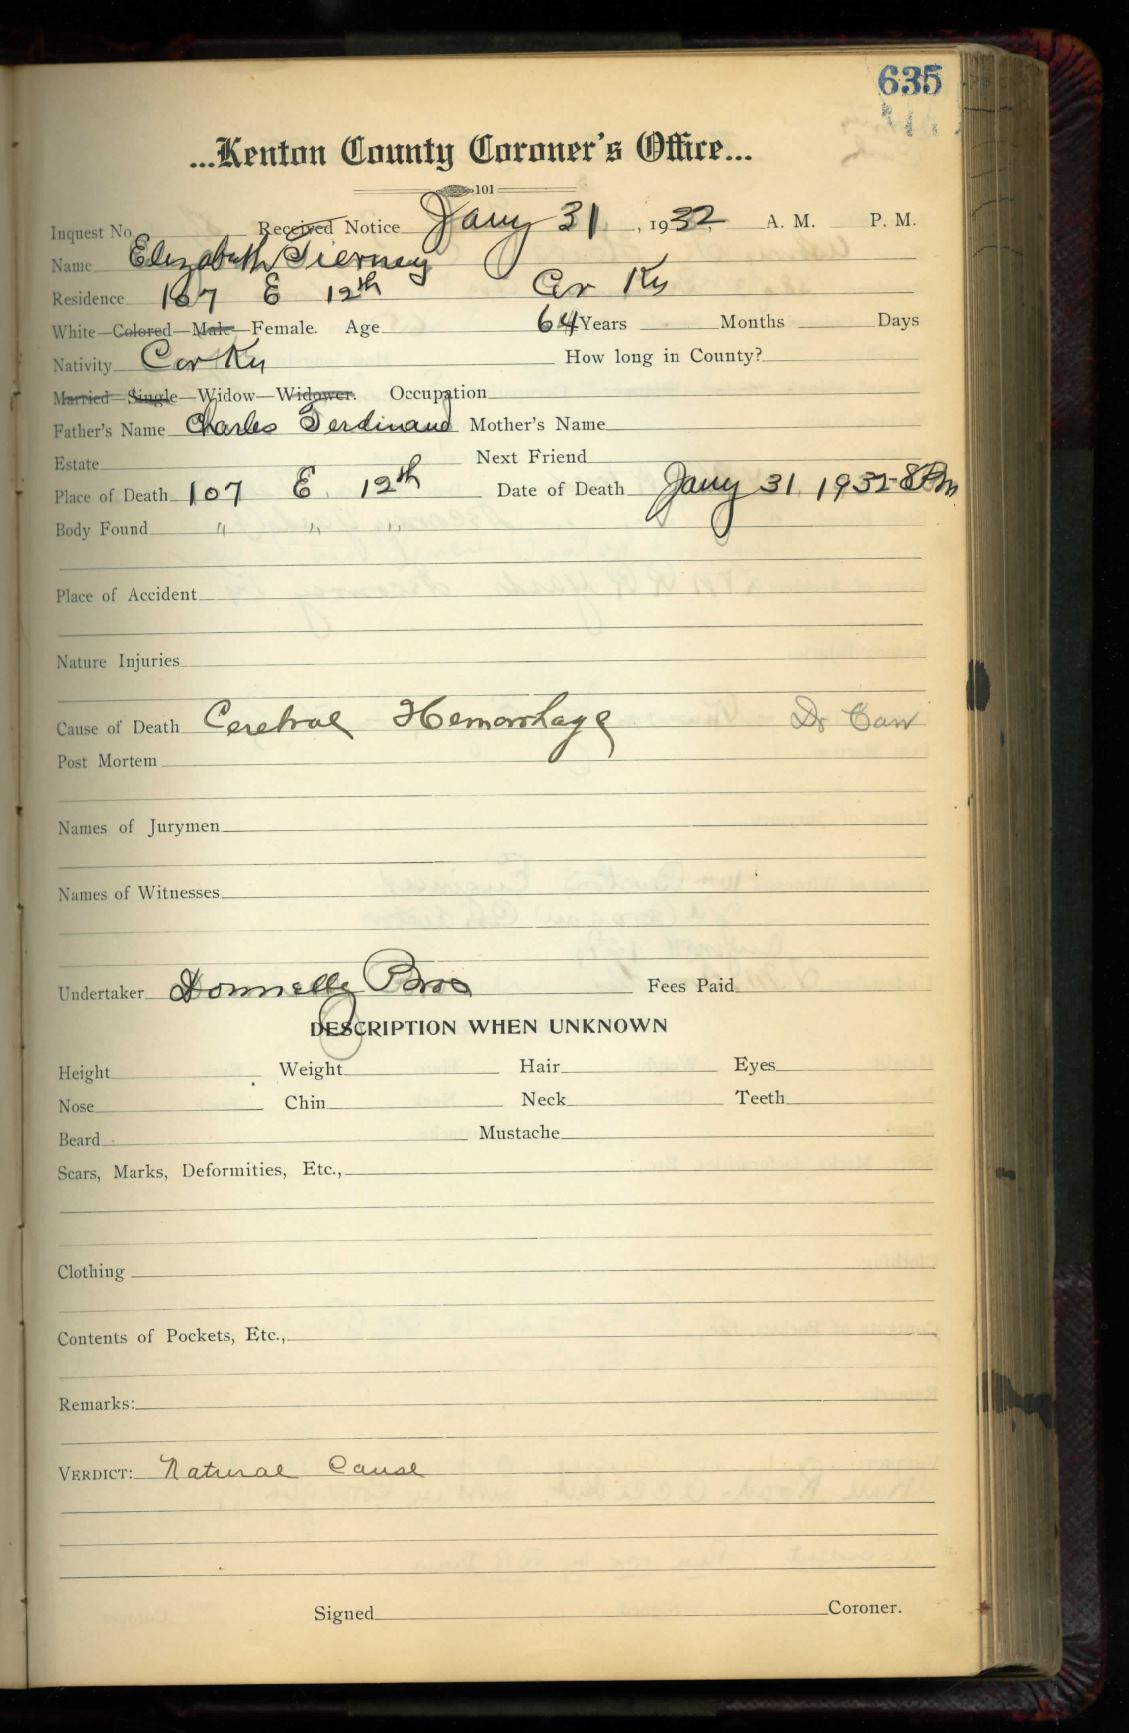 635
...Kenton County Coroner's Office...
101
Inquest No. Received Notice Jany 31, 1932 A. M. P. M.
Name Elizabeth Tierney
Residence 107 E 12th Cov Ky
White—Colored—Male—Female. Age 64 Years Months Days
Nativity Cov Ky How long in County?
Married—Single—Widow—Widower. Occupation
Father's Name Charles Ferdinand Mother's Name
Estate Next Friend
Place of Death 107 E. 12th Date of Death Jany 31, 1932-8Pm
Body Found " " "
Place of Accident
Nature Injuries
Cause of Death Cerebral Hemorrhage Dr Carr
Post Mortem
Names of Jurymen
Names of Witnesses
Undertaker Donnelly Bros Fees Paid
DESCRIPTION WHEN UNKNOWN
Height Weight Hair Eyes
Nose Chin Neck Teeth
Beard Mustache
Scars, Marks, Deformities, Etc.,
Clothing
Contents of Pockets, Etc.,
Remarks:
VERDICT: Natural Cause
Signed Coroner.